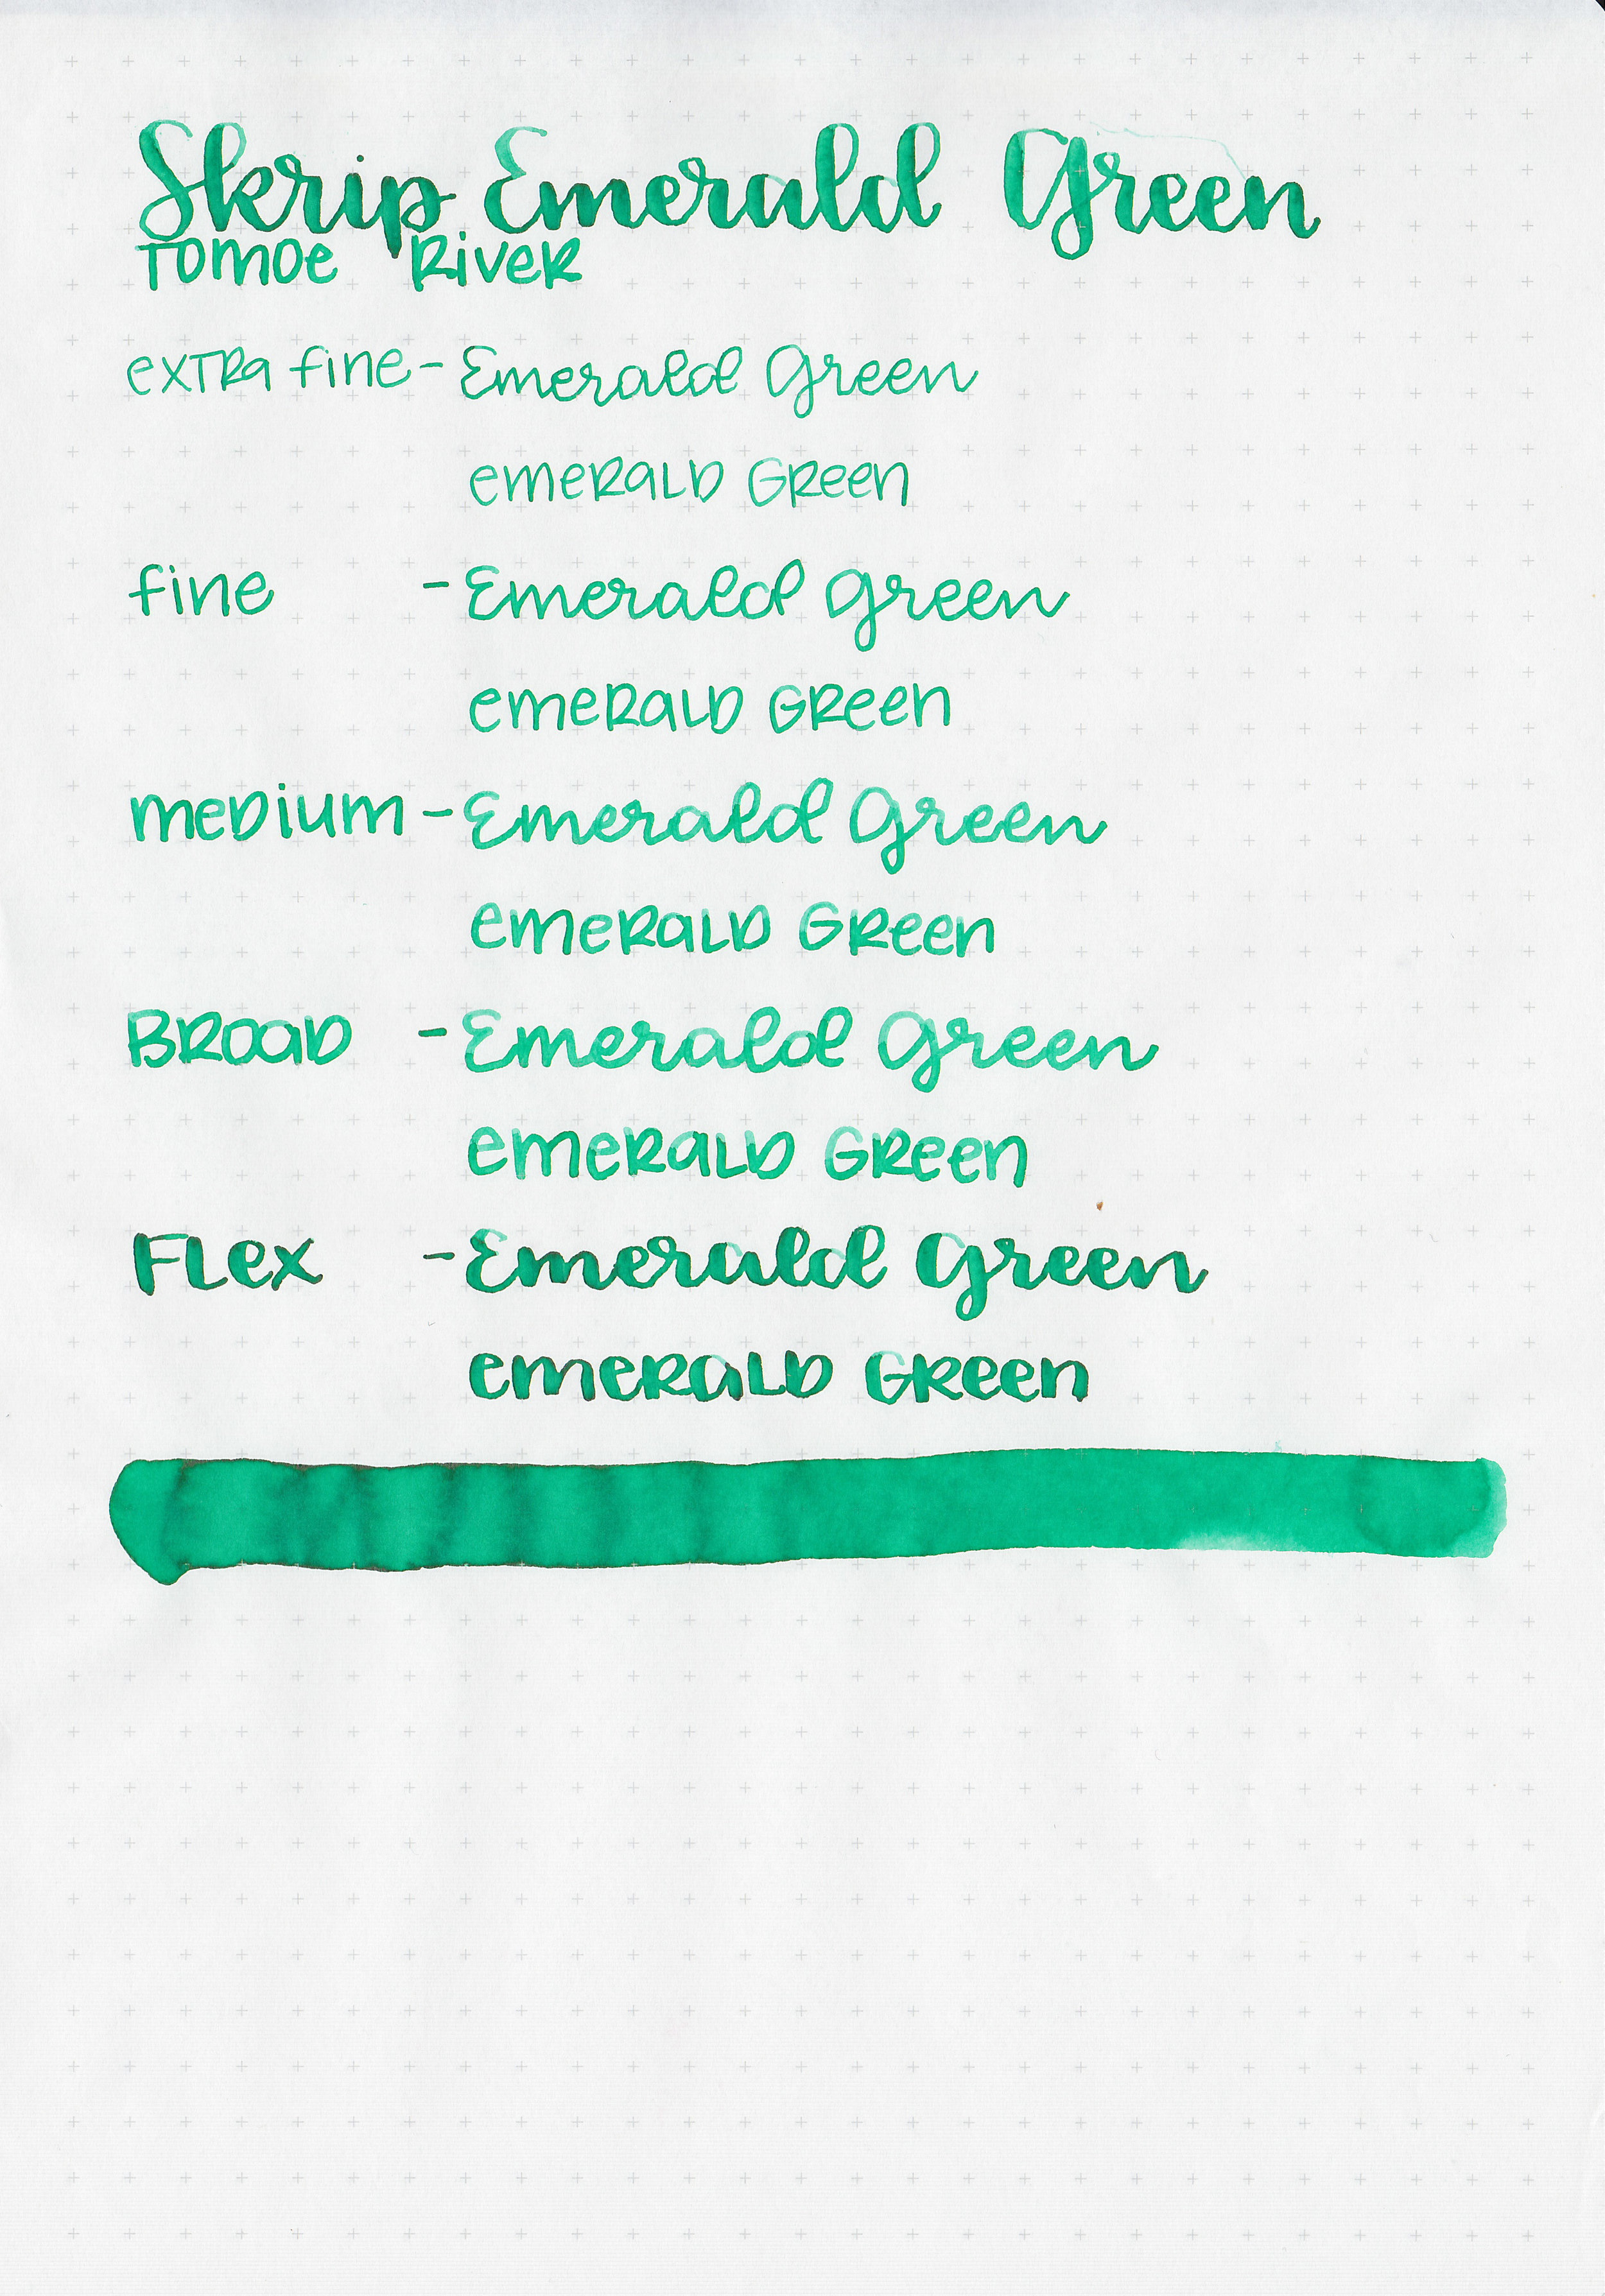 Skrip Emerald Green
Tomoe River
extra fine - Emerald Green
emerald Green
fine - Emerald Green
emerald Green
medium - Emerald Green
emerald Green
Broad - Emerald Green
emerald Green
Flex - Emerald Green
emerald Green